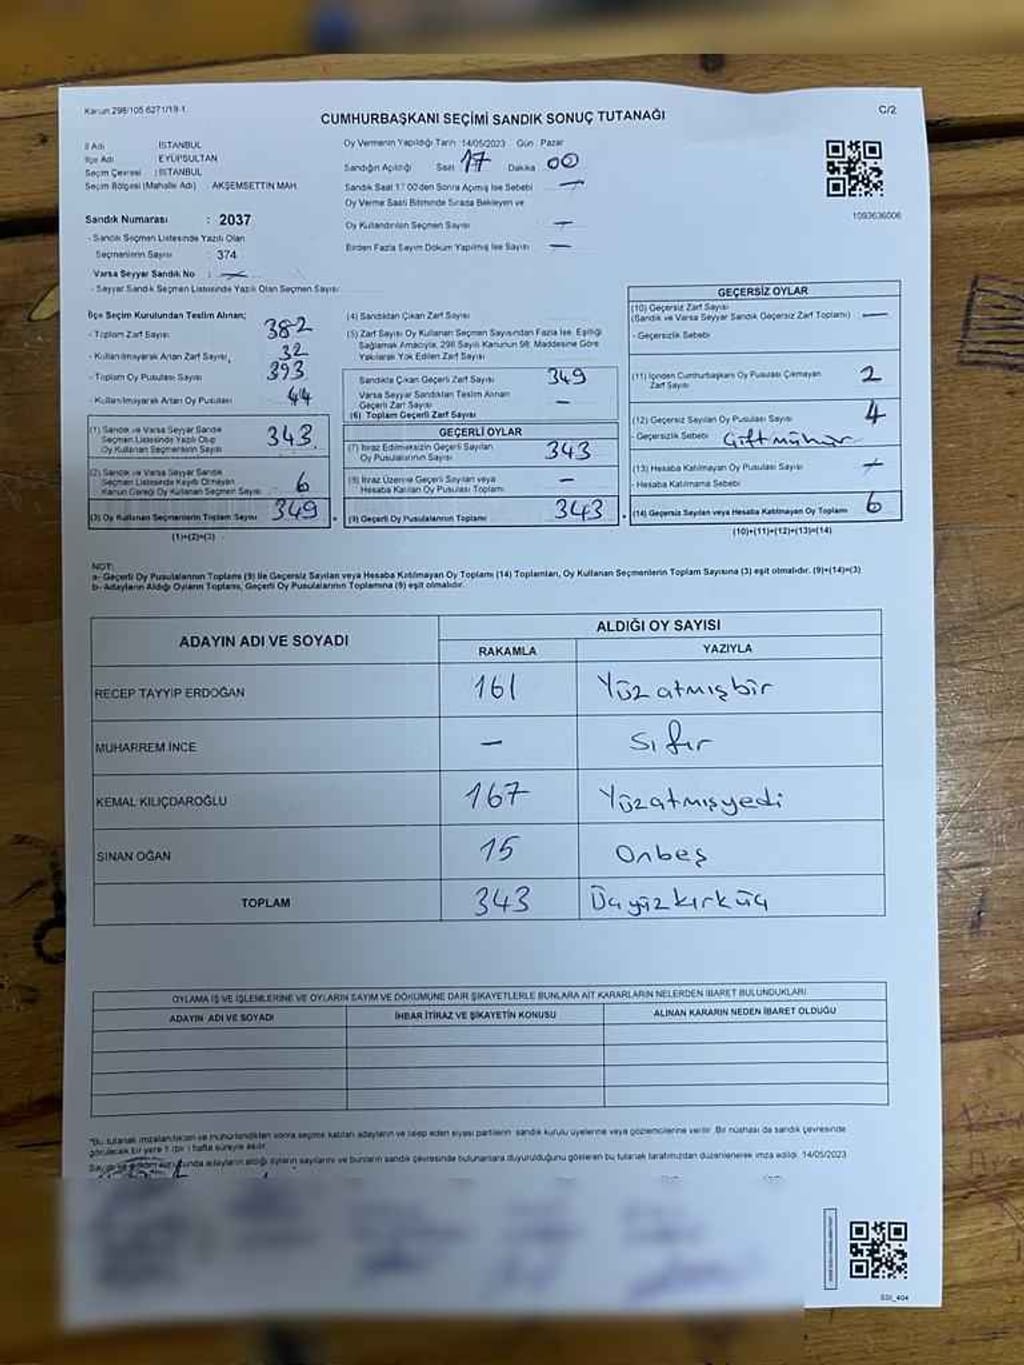 Kanun 298/105 6271/19-1
C/2
CUMHURBAŞKANI SEÇİMİ SANDIK SONUÇ TUTANAĞI
İl Adı : İSTANBUL
İlçe Adı : EYÜPSULTAN
Seçim Çevresi : İSTANBUL
Seçim Bölgesi (Mahalle Adı) : AKŞEMSETTİN MAH.
Sandık Numarası : 2037
- Sandık Seçmen Listesinde Yazılı Olan
Seçmenlerin Sayısı 374
Varsa Seyyar Sandık No : —
- Seyyar Sandık Seçmen Listesinde Yazılı Olan Seçmen Sayısı
Oy Vermenin Yapıldığı Tarih 14/05/2023 Gün Pazar
Sandığın Açıldığı Saat 17 Dakika 00
Sandık Saat 17.00'den Sonra Açılmış İse Sebebi —
Oy Verme Saati Bitiminde Sırada Bekleyen ve
Oy Kullandırılan Seçmen Sayısı —
Birden Fazla Sayım Döküm Yapılmış İse Sayısı —
1093636006
İlçe Seçim Kurulundan Teslim Alınan;
- Toplam Zarf Sayısı 382
- Kullanılmayarak Artan Zarf Sayısı 32
- Toplam Oy Pusulası Sayısı 393
- Kullanılmayarak Artan Oy Pusulası 44
(1) Sandık ve Varsa Seyyar Sandık
Seçmen Listesinde Yazılı Olup
Oy Kullanan Seçmenlerin Sayısı 343
(2) Sandık ve Varsa Seyyar Sandık
Seçmen Listesinde Kayıtlı Olmayan
Kanun Gereği Oy Kullanan Seçmen Sayısı 6
(3) Oy Kullanan Seçmenlerin Toplam Sayısı 349
(1)+(2)=(3)
(4) Sandıktan Çıkan Zarf Sayısı
(5) Zarf Sayısı Oy Kullanan Seçmen Sayısından Fazla İse, Eşitliği
Sağlamak Amacıyla, 298 Sayılı Kanunun 98. Maddesine Göre
Yakılarak Yok Edilen Zarf Sayısı
Sandıkta Çıkan Geçerli Zarf Sayısı 349
Varsa Seyyar Sandıktan Teslim Alınan
Geçerli Zarf Sayısı —
(6) Toplam Geçerli Zarf Sayısı
GEÇERLİ OYLAR
(7) İtiraz Edilmeksizin Geçerli Sayılan
Oy Pusulalarının Sayısı 343
(8) İtiraz Üzerine Geçerli Sayılan veya
Hesaba Katılan Oy Pusulası Toplamı —
(9) Geçerli Oy Pusulalarının Toplamı 343
GEÇERSİZ OYLAR
(10) Geçersiz Zarf Sayısı
(Sandık ve Varsa Seyyar Sandık Geçersiz Zarf Toplamı) —
- Geçersizlik Sebebi
(11) İçinden Cumhurbaşkanı Oy Pusulası Çıkmayan
Zarf Sayısı 2
(12) Geçersiz Sayılan Oy Pusulası Sayısı 4
- Geçersizlik Sebebi Çift mühür
(13) Hesaba Katılmayan Oy Pusulası Sayısı —
- Hesaba Katılmama Sebebi
(14) Geçersiz Sayılan veya Hesaba Katılmayan Oy Toplamı 6
(10)+(11)+(12)+(13)=(14)
NOT:
a- Geçerli Oy Pusulalarının Toplamı (9) ile Geçersiz Sayılan veya Hesaba Katılmayan Oy Toplamı (14) Toplamları, Oy Kullanan Seçmenlerin Toplam Sayısına (3) eşit olmalıdır. (9)+(14)=(3)
b- Adayların Aldığı Oyların Toplamı, Geçerli Oy Pusulalarının Toplamına (9) eşit olmalıdır.
ADAYIN ADI VE SOYADI
ALDIĞI OY SAYISI
RAKAMLA YAZIYLA
RECEP TAYYİP ERDOĞAN 161 Yüzatmışbir
MUHARREM İNCE — sıfır
KEMAL KILIÇDAROĞLU 167 Yüzatmışyedi
SİNAN OĞAN 15 Onbeş
TOPLAM 343 Üçyüzkırküç
OYLAMA İŞ VE İŞLEMLERİNE VE OYLARIN SAYIM VE DÖKÜMÜNE DAİR ŞİKAYETLERLE BUNLARA AİT KARARLARIN NELERDEN İBARET BULUNDUKLARI
ADAYIN ADI VE SOYADI İHBAR İTİRAZ VE ŞİKAYETİN KONUSU ALINAN KARARIN NEDEN İBARET OLDUĞU
*Bu tutanak imzalandıktan ve mühürlendikten sonra seçime katılan adayların ve talep eden siyasi partilerin sandık kurulu üyelerine veya gözlemcilerine verilir. Bir nüshası da sandık çevresinde
görülecek bir yere 1 (bir) hafta süreyle asılır.
adayların aldığı oyların sayılarını ve bunların sandık çevresinde bulunanlara duyurulduğunu gösteren bu tutanak tarafımızdan düzenlenerek imza edildi. 14/05/2023
SSI_404